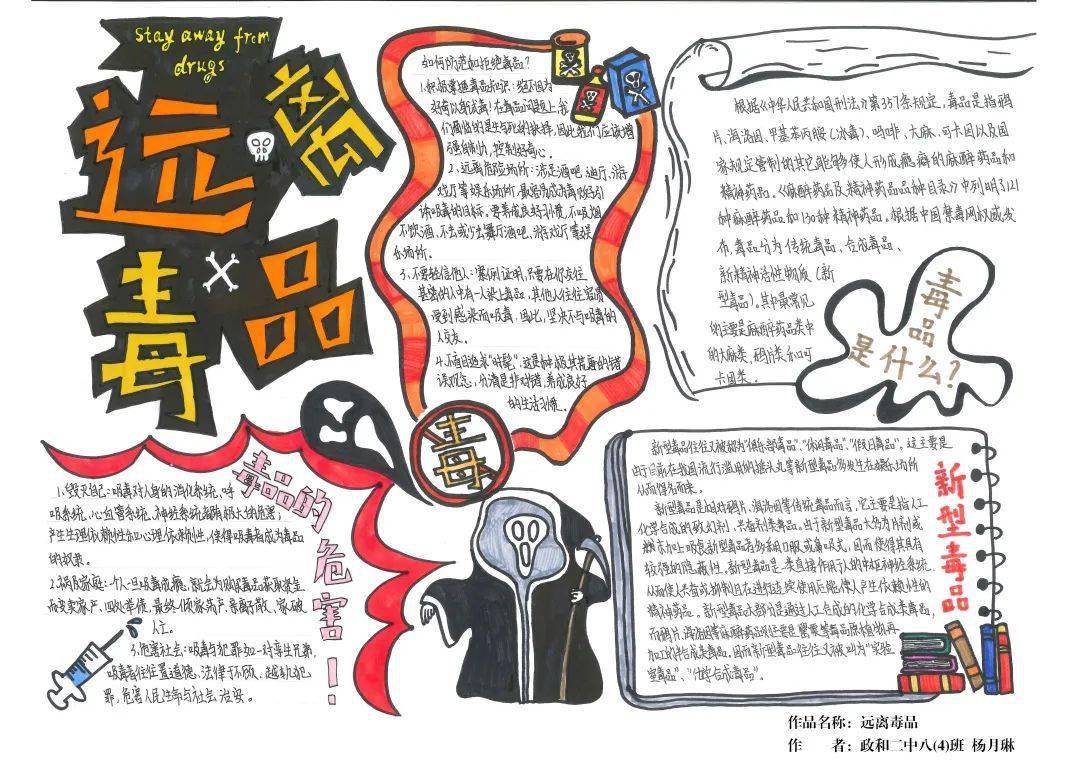 stay away from
drugs
远离
毒品
如何防范和拒绝毒品?
1.积极掌握毒品知识:绝不因为
好奇以身试毒!在毒品问题上,我
们面临的是生与死的抉择,因此我们应该增
强自制力,控制好奇心。
2.远离危险场所:涉足酒吧、迪厅、游
戏厅等娱乐场所,最容易成为毒贩引
诱吸毒的目标。要养成良好习惯,不吸烟
不饮酒,不去或少去舞厅酒吧、游戏厅等娱
乐场所。
3.不要轻信他人:案例证明,只要在你友往
甚密的人中有一人染上毒品,其他人往往容易
受到感染而吸毒,因此,坚决不与吸毒的
人交友。
4.不盲目追求“时髦”,这是种极其荒唐的错
误观念,分清是非对错,养成良好
的生活习惯。
毒
根据《中华人民共和国刑法》第357条规定,毒品是指鸦
片、海洛因、甲基苯丙胺(冰毒)、吗啡、大麻、可卡因以及国
家规定管制的其它能够使人形成瘾癖的麻醉药品和
精神药品。《麻醉药品及精神药品品种目录》中列明了121
种麻醉药品和130种精神药品。根据中国禁毒网权威发
布,毒品分为传统毒品、合成毒品、
新精神活性物质(新
型毒品)。其中最常见
的主要是麻醉药品类中
的大麻类、鸦片类和可
卡因类。
毒品
是什么?
毒品的危害!
1.毁灭自己:吸毒对人身的消化系统、呼
吸系统、心血管系统、神经系统都有极大的危害,
产生生理依赖性和心理依赖性,使得吸毒者成为毒品
的奴隶。
2.祸及家庭:个人一旦吸毒成瘾,就会为购毒品获取资金
而变卖家产,四处举债,最终倾家荡产、妻离子散、家破
人亡。
3.危害社会:吸毒与犯罪如一对孪生兄弟,
吸毒者往往置道德、法律于不顾,越轨犯
罪,危害人民生命与社会治安。
新型毒品
新型毒品往往又被称为“俱乐部毒品”、“休闲毒品”、“假日毒品”。这主要是
由于目前在我国流行滥用的摇头丸等新型毒品多发生在娱乐场所
从而得名而来。
新型毒品是相对鸦片、海洛因等传统毒品而言,它主要是指人工
化学合成的致幻剂、兴奋剂类毒品。由于新型毒品大多为片剂或
粉末加上吸食新型毒品者多采用口服或鼻吸式,因而使得其具有
较强的隐蔽性。新型毒品是一类直接作用于人的中枢神经系统,
从而使人兴奋或抑制且在进行连续使用后能使人产生依赖性的
精神药品。新型毒品大部分是通过人工合成的化学合成类毒品,
而鸦片、海洛因等麻醉药品则主要是罂粟等毒品原植物再
加工的半合成类毒品。因而新型毒品往往又被叫为“实验
室毒品”、“化学合成毒品”。
作品名称:远离毒品
作　　者:政和二中八(4)班 杨月琳